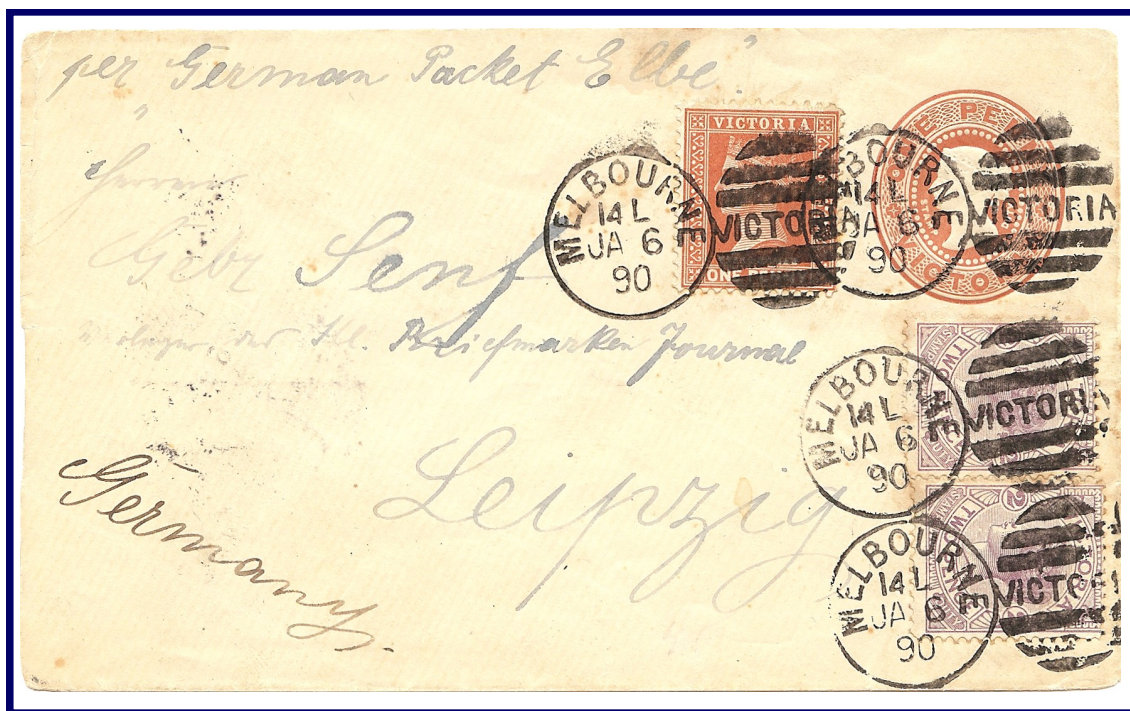 per "German Packet Elbe".
Herren
Gebr Senf
der Ill. Briefmarken Journal
Leipzig
Germany.
VICTORIA
ONE PENNY
MELBOURNE
14 L
JA 6
90
VICTORIA
MELBOURNE
14 L
JA 6
90
VICTORIA
ONE PENNY
VICTORIA
MELBOURNE
14 L
JA 6
90
VICTORIA
STAMP
TWO
MELBOURNE
14 L
JA 6
90
VICTORIA
STAMP
TWO
2